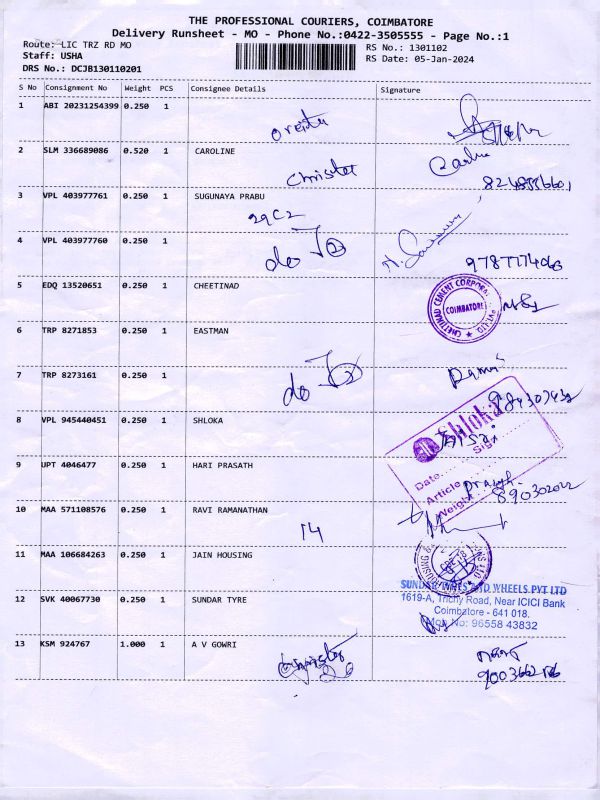 THE PROFESSIONAL COURIERS, COIMBATORE
Delivery Runsheet - MO - Phone No.:0422-3505555 - Page No.:1
Route: LIC TRZ RD MO
RS No.: 1301102
Staff: USHA
RS Date: 05-Jan-2024
DRS No.: DCJB130110201
S No Consignment No Weight PCS Consignee Details Signature
1 ABI 20231254399 0.250 1
2 SLM 336689086 0.520 1 CAROLINE
3 VPL 403977761 0.250 1 SUGUNAYA PRABU
29C2
4 VPL 403977760 0.250 1
do
5 EDQ 13520651 0.250 1 CHEETINAD
CHETTINAD CEMENT CORPORA PVT LTD
COIMBATORE
6 TRP 8271853 0.250 1 EASTMAN
7 TRP 8273161 0.250 1
do
8 VPL 945440451 0.250 1 SHLOKA
Shloka
Date....
Sign
Article
Weight
9 UPT 4046477 0.250 1 HARI PRASATH
890302022
10 MAA 571108576 0.250 1 RAVI RAMANATHAN
14
11 MAA 106684263 0.250 1 JAIN HOUSING
12 SVK 40067730 0.250 1 SUNDAR TYRE
SUNDAR TYRES AND WHEELS PVT LTD
1619-A, Trichy Road, Near ICICI Bank
Coimbatore - 641 018.
Mob No: 96558 43832
13 KSM 924767 1.000 1 A V GOWRI